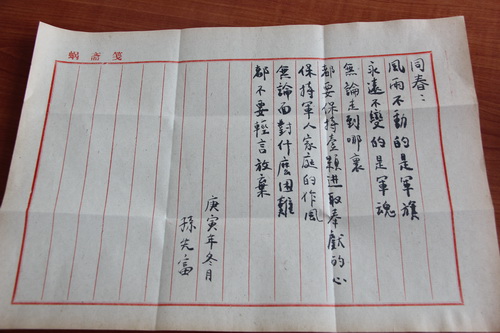 蝸齋箋
同春：
風雨不動的是軍旗
永遠不變的是軍魂
無論走到哪裏
都要保持壹顆進取奉獻的心
保持軍人家庭的作風
無論面對什麼困難
都不要輕言放棄
庚寅年冬月
孫先富